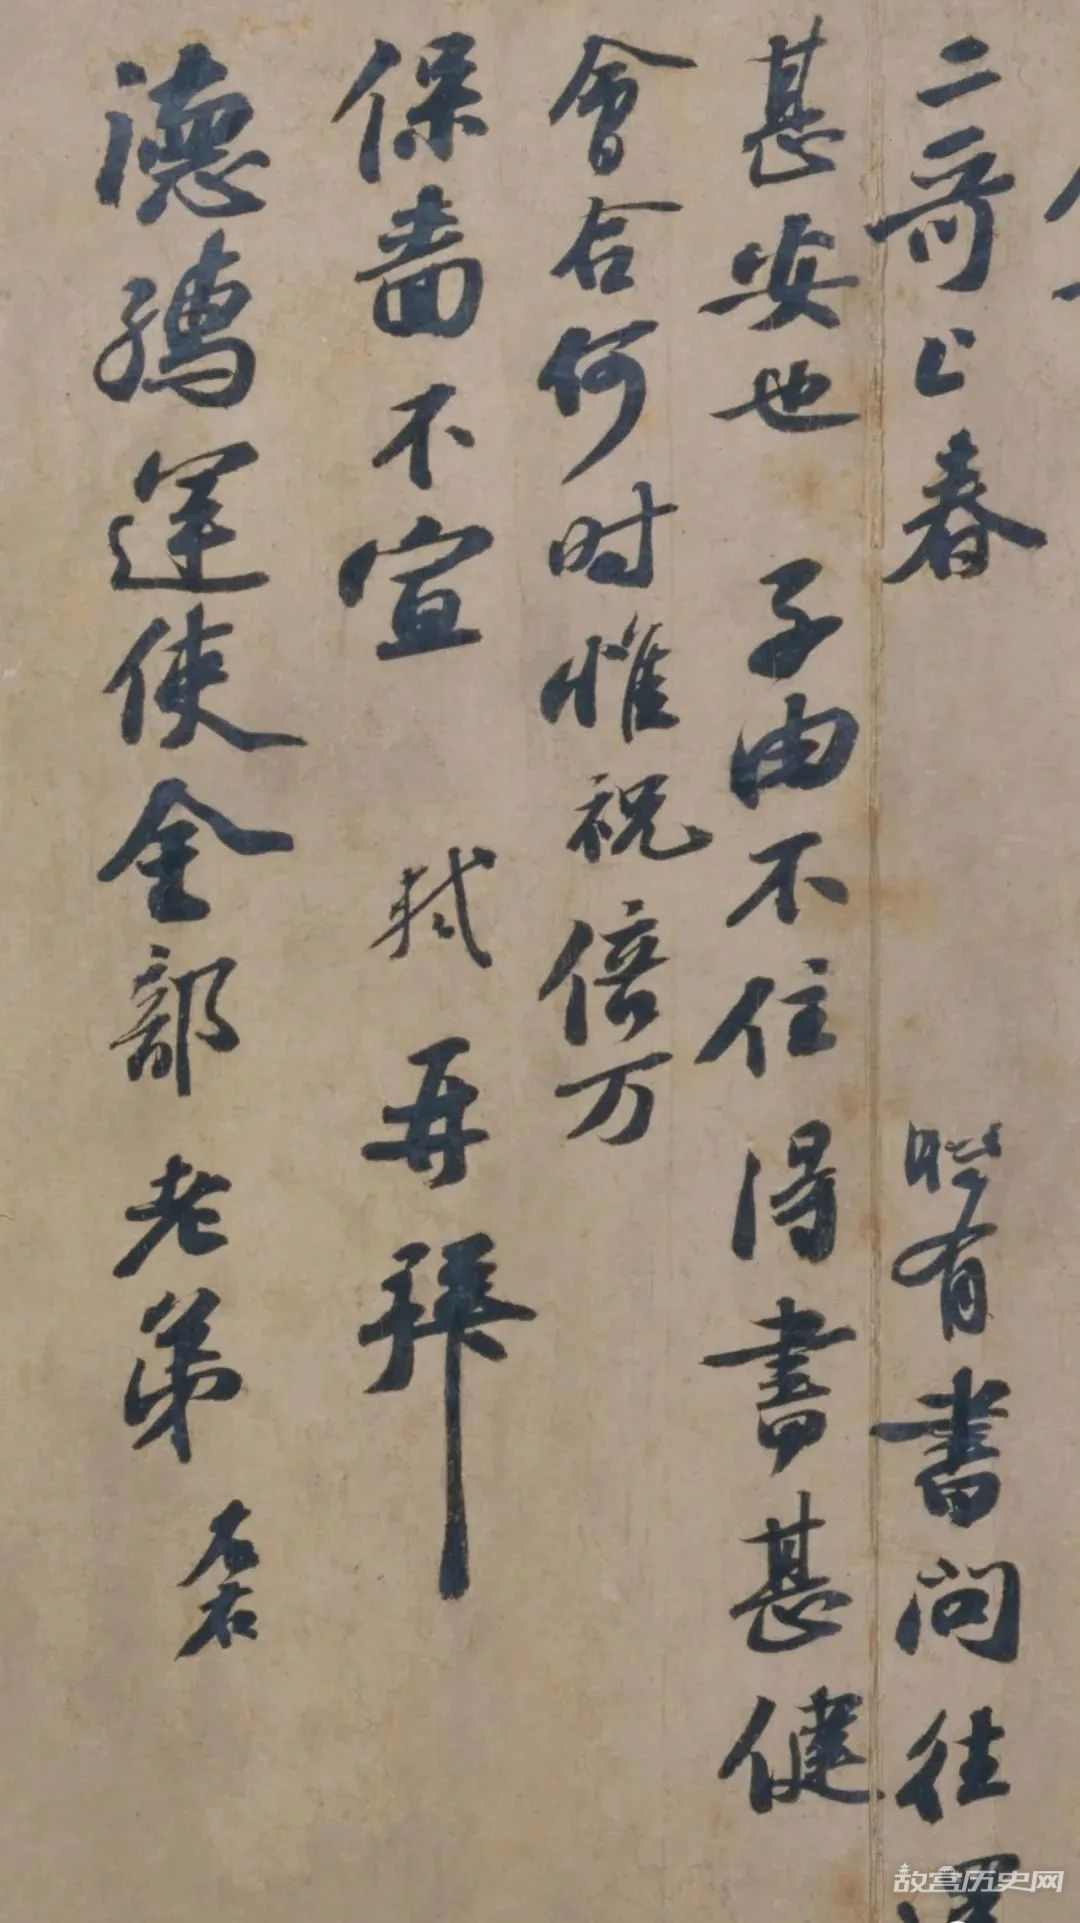 二哥上春時有書問往
甚安也子由不住得書甚健
會合何时惟祝倍万
保嗇不宣軾再拜
德孺運使金部老弟左右
故宫历史网